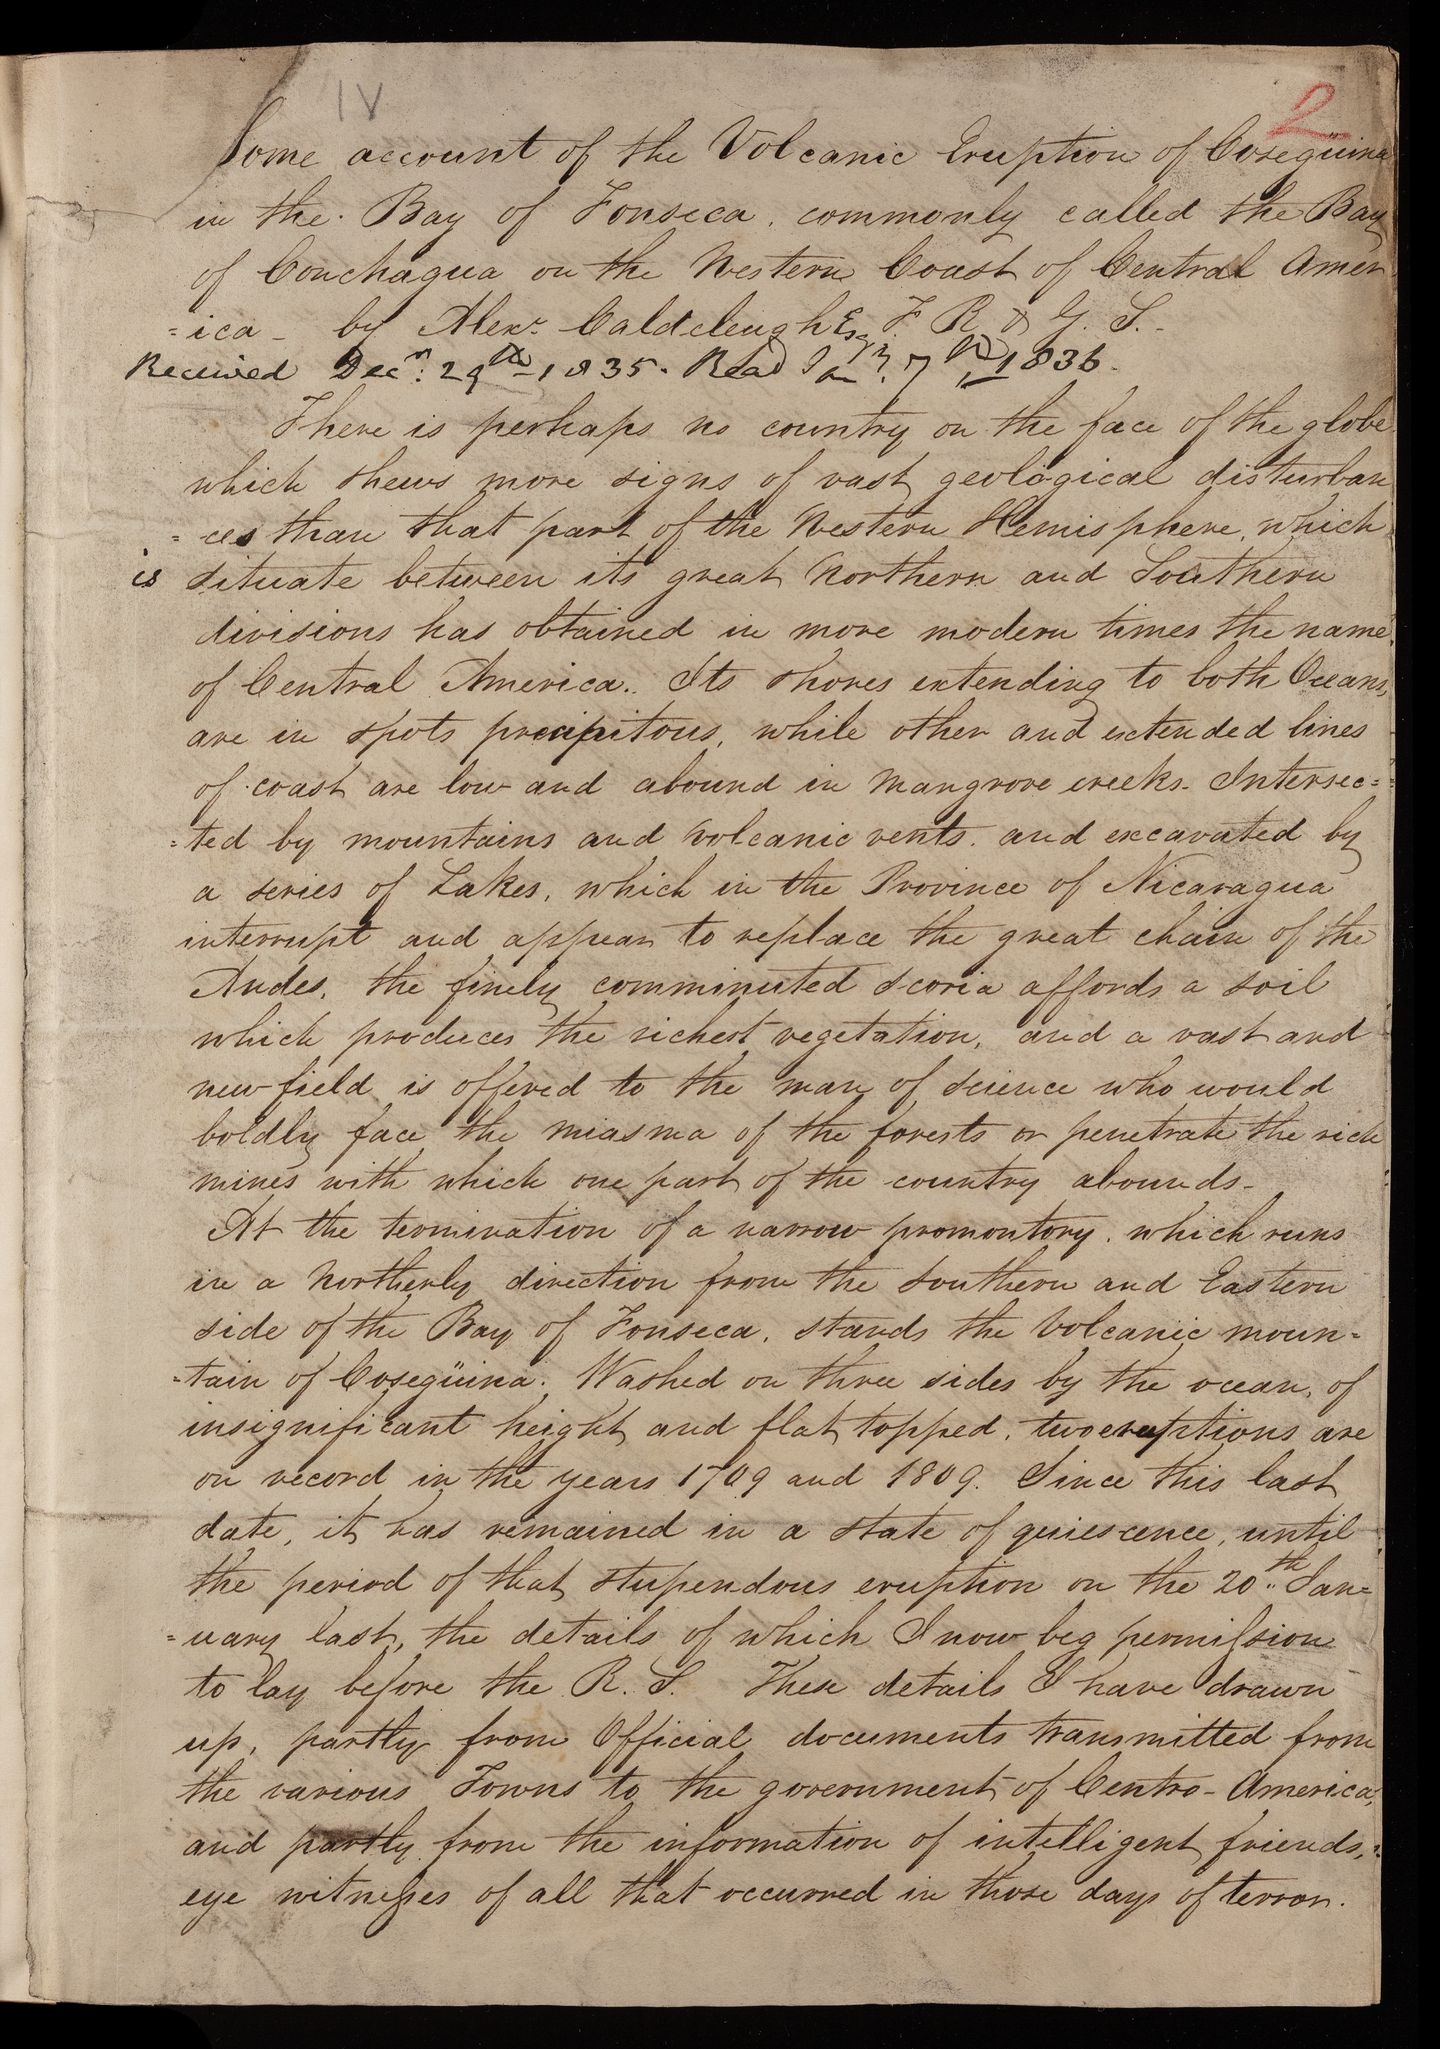 IV
2
Some account of the Volcanic Eruption of Cosegüina
in the Bay of Fonseca, commonly called the Bay
of Conchagua on the Western Coast of Central Amer
=ica - by Alexr. Caldcleugh Esqr. F. R. & G. S. -
Received Decr. 29th 1835. Read Jany. 7th 1836.
There is perhaps no country on the face of the globe
which shews more signs of vast geological disturban
=ces than that part of the Western Hemisphere, which
is situate between its great Northern and Southern
divisions has obtained in more modern times the name
of Central America. Its shores extending to both Oceans,
are in spots precipitous, while other and extended lines
of coast are low and abound in Mangrove creeks. Intersec=
=ted by mountains and Volcanic vents, and excavated by
a series of Lakes, which in the Province of Nicaragua
interrupt and appear to replace the great chain of the
Andes, the finely comminuted scoria affords a soil
which produces the richest vegetation, and a vast and
new field is offered to the man of science who would
boldly face the miasma of the forests or penetrate the rich
mines with which one part of the country abounds -
At the termination of a narrow promontory, which runs
in a Northerly direction from the Southern and Eastern
side of the Bay of Fonseca, stands the Volcanic moun=
=tain of Cosegüina. Washed on three sides by the ocean, of
insignificant height and flat topped, two eruptions are
on record in the years 1709 and 1809. Since this last
date, it has remained in a state of quiescence, until
the period of that stupendous eruption on the 20th Jan=
=uary last, the details of which I now beg permission
to lay before the R. S. These details I have drawn
up, partly from Official documents transmitted from
the various Towns to the government of Centro-America,
and partly from the information of intelligent friends,
eye witnesses of all that occurred in those days of terror.